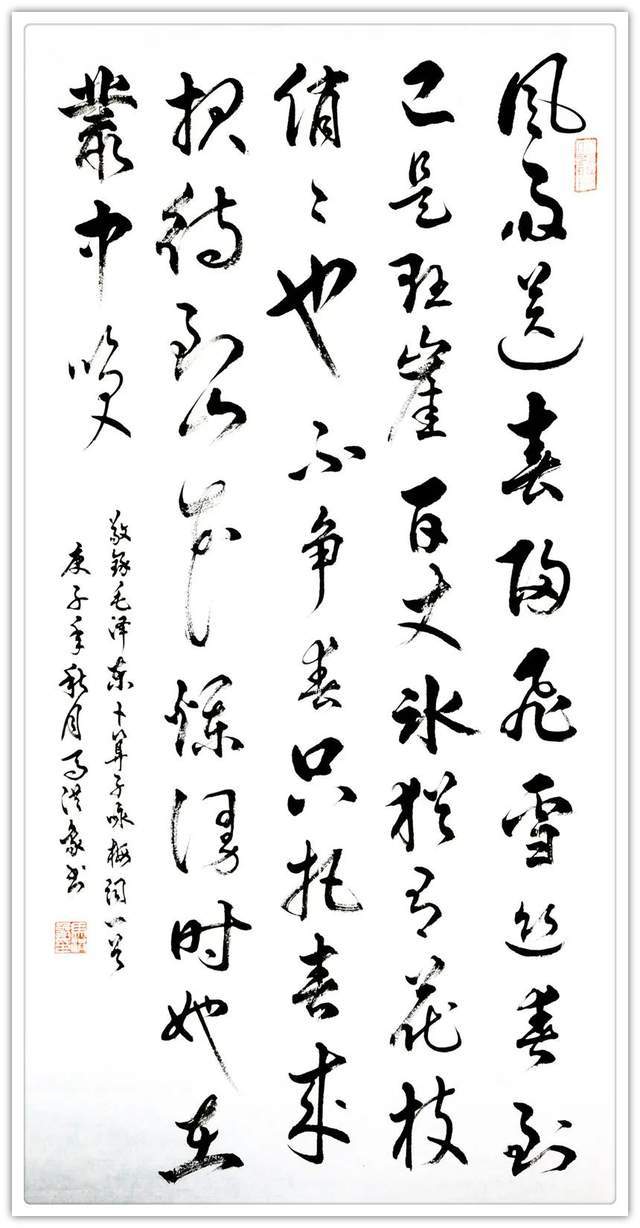 风雨送春归飞雪迎春到
已是悬崖百丈冰犹有花枝
俏〻也不争春只把春来
报待到山花烂漫时她在
叢中咲
敬録毛泽东卜算子咏梅词一首
庚子年秋月马洪象书